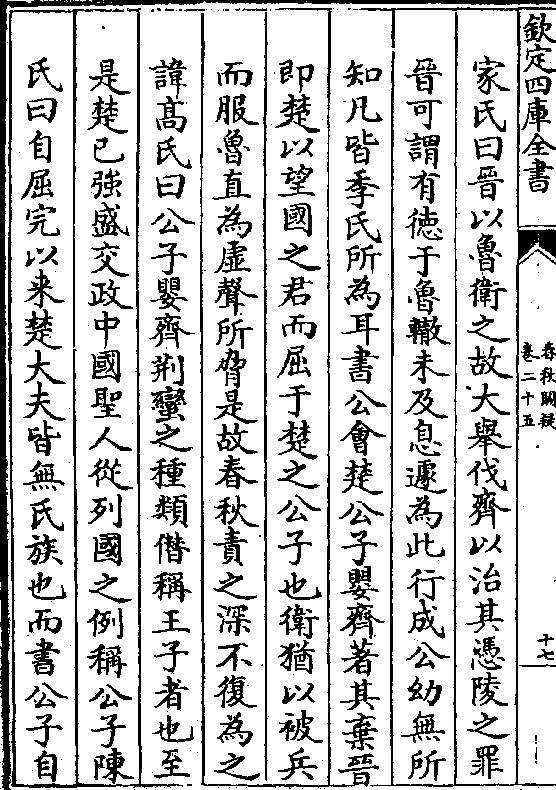 欽定四庫全書
春秋闕疑
卷二十五
十七
家氏曰晉以魯衛之故大舉伐齊以治其憑陵之罪
晉可謂有德于魯轍未及息遽為此行成公幼無所
知凡皆季氏所為耳書公會楚公子嬰齊著其棄晉
即楚以望國之君而屈于楚之公子也衛猶以被兵
而服魯直為虛聲所脅是故春秋責之深不復為之
諱高氏曰公子嬰齊荆蠻之種類僭稱王子者也至
是楚已強盛交政中國聖人從列國之例稱公子陳
氏曰自屈完以来楚大夫皆無氏族也而書公子自